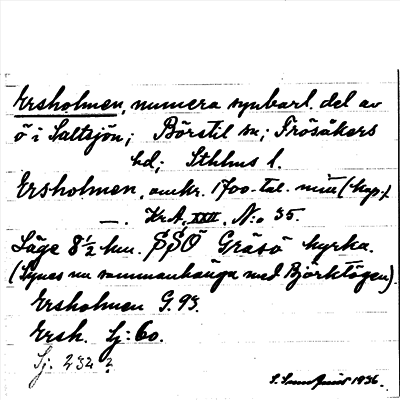 Ersholmen, numera synbarl. del av
ö i Saltsjön; Börstil sn.; Frösåkers
hd; Sthlms l.
Ersholmen, omkr. 1700-tal.
—. KrA, XXII, No 35.
Läge 8½ km. SSÖ Gräsö kyrka.
(Synes nu sammanhänga med Björktögen).
Ersholmen G. 93.
Ersh. Sj: 60.
Sj. 232?
1936.